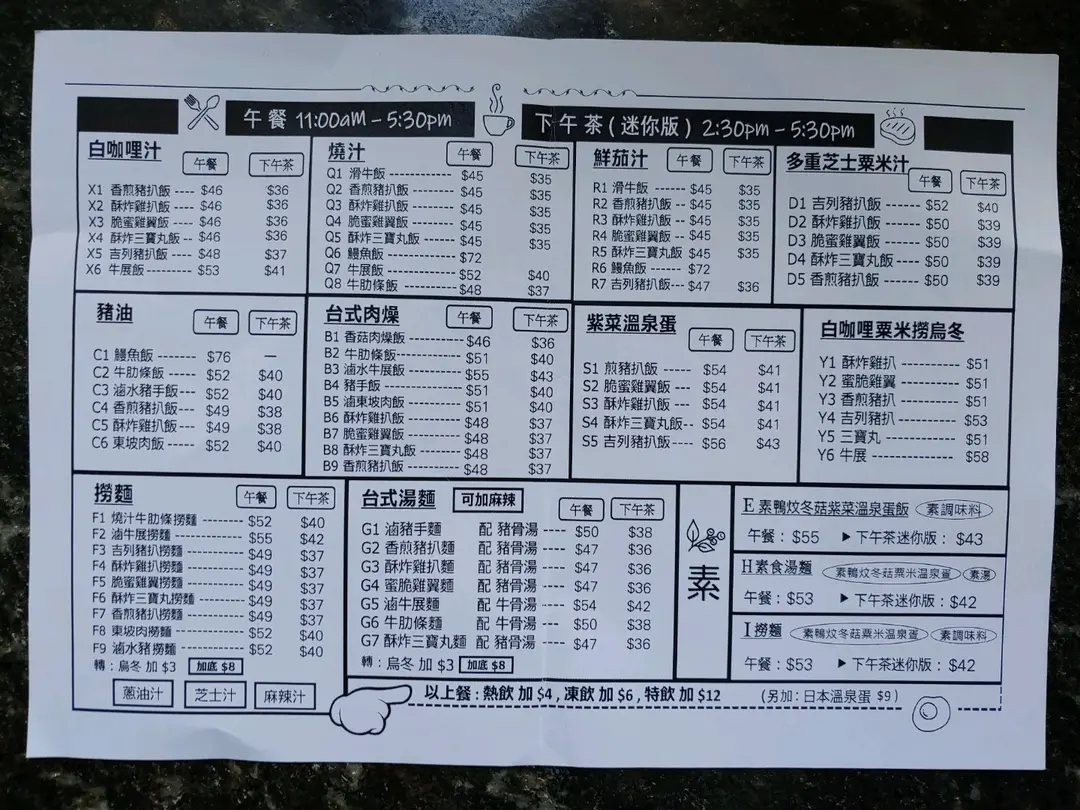 午餐 11:00am – 5:30pm
下午茶(迷你版) 2:30pm – 5:30pm
白咖哩汁 午餐 下午茶
X1 香煎豬扒飯 ---- $46 $36
X2 酥炸雞扒飯 ---- $46 $36
X3 脆蜜雞翼飯 ---- $46 $36
X4 酥炸三寶丸飯 -- $46 $36
X5 吉列豬扒飯 ---- $48 $37
X6 牛展飯 -------- $53 $41
燒汁 午餐 下午茶
Q1 滑牛飯 -------- $45 $35
Q2 香煎豬扒飯 ---- $45 $35
Q3 酥炸雞扒飯 ---- $45 $35
Q4 脆蜜雞翼飯 ---- $45 $35
Q5 酥炸三寶丸飯 --- $45 $35
Q6 鰻魚飯 -------- $72
Q7 牛展飯 -------- $52 $40
Q8 牛肋條飯 ------ $48 $37
鮮茄汁 午餐 下午茶
R1 滑牛飯 ------ $45 $35
R2 香煎豬扒飯 -- $45 $35
R3 酥炸雞扒飯 -- $45 $35
R4 脆蜜雞翼飯 -- $45 $35
R5 酥炸三寶丸飯 $45 $35
R6 鰻魚飯 ------ $72
R7 吉列豬扒飯--- $47 $36
多重芝士粟米汁 午餐 下午茶
D1 吉列豬扒飯 ----- $52 $40
D2 酥炸雞扒飯 ----- $50 $39
D3 脆蜜雞翼飯 ----- $50 $39
D4 酥炸三寶丸飯 --- $50 $39
D5 香煎豬扒飯 ----- $50 $39
豬油 午餐 下午茶
C1 鰻魚飯 ------- $76 —
C2 牛肋條飯 ----- $52 $40
C3 滷水豬手飯--- $52 $40
C4 香煎豬扒飯 --- $49 $38
C5 酥炸雞扒飯 --- $49 $38
C6 東坡肉飯 ----- $52 $40
台式肉燥 午餐 下午茶
B1 香菇肉燥飯 --------- $46 $36
B2 牛肋條飯----------- $51 $40
B3 滷水牛展飯 --------- $55 $43
B4 豬手飯 ------------ $51 $40
B5 滷東坡肉飯 --------- $51 $40
B6 酥炸雞扒飯 --------- $48 $37
B7 脆蜜雞翼飯 --------- $48 $37
B8 酥炸三寶丸飯 ------- $48 $37
B9 香煎豬扒飯 --------- $48 $37
紫菜溫泉蛋 午餐 下午茶
S1 煎豬扒飯 ----- $54 $41
S2 脆蜜雞翼飯 --- $54 $41
S3 酥炸雞扒飯 --- $54 $41
S4 酥炸三寶丸飯-- $54 $41
S5 吉列豬扒飯---- $56 $43
白咖哩粟米撈烏冬
Y1 酥炸雞扒 ---------- $51
Y2 蜜脆雞翼 ---------- $51
Y3 香煎豬扒 ---------- $51
Y4 吉列豬扒 ---------- $53
Y5 三寶丸 ------------ $51
Y6 牛展 -------------- $58
撈麵 午餐 下午茶
F1 燒汁牛肋條撈麵 ------- $52 $40
F2 滷牛展撈麵 ---------- $55 $42
F3 吉列豬扒撈麵 -------- $49 $37
F4 酥炸雞扒撈麵 -------- $49 $37
F5 脆蜜雞翼撈麵 -------- $49 $37
F6 酥炸三寶丸撈麵 ------- $49 $37
F7 香煎豬扒撈麵 -------- $49 $37
F8 東坡肉撈麵 ---------- $52 $40
F9 滷水豬手撈麵 -------- $52 $40
轉 : 烏冬 加 $3 加底 $8
蔥油汁 芝士汁 麻辣汁
台式湯麵 可加麻辣 午餐 下午茶
G1 滷豬手麵 配 豬骨湯 ---- $50 $38
G2 香煎豬扒麵 配 豬骨湯 ---- $47 $36
G3 酥炸雞扒麵 配 豬骨湯 ---- $47 $36
G4 蜜脆雞翼麵 配 豬骨湯 ---- $47 $36
G5 滷牛展麵 配 牛骨湯 ---- $54 $42
G6 牛肋條麵 配 牛骨湯 ---- $50 $38
G7 酥炸三寶丸麵 配 豬骨湯 ---- $47 $36
轉 : 烏冬 加 $3 加底 $8
素
E 素鴨炆冬菇紫菜溫泉蛋飯 素調味料
午餐 : $55 ▶下午茶迷你版 : $43
H 素食湯麵 素鴨炆冬菇粟米溫泉蛋 素湯
午餐 : $53 ▶下午茶迷你版 : $42
I 撈麵 素鴨炆冬菇粟米溫泉蛋 素調味料
午餐 : $53 ▶下午茶迷你版 : $42
以上餐 : 熱飲 加 $4 , 凍飲 加 $6 , 特飲 加 $12 (另加: 日本溫泉蛋 $9 )